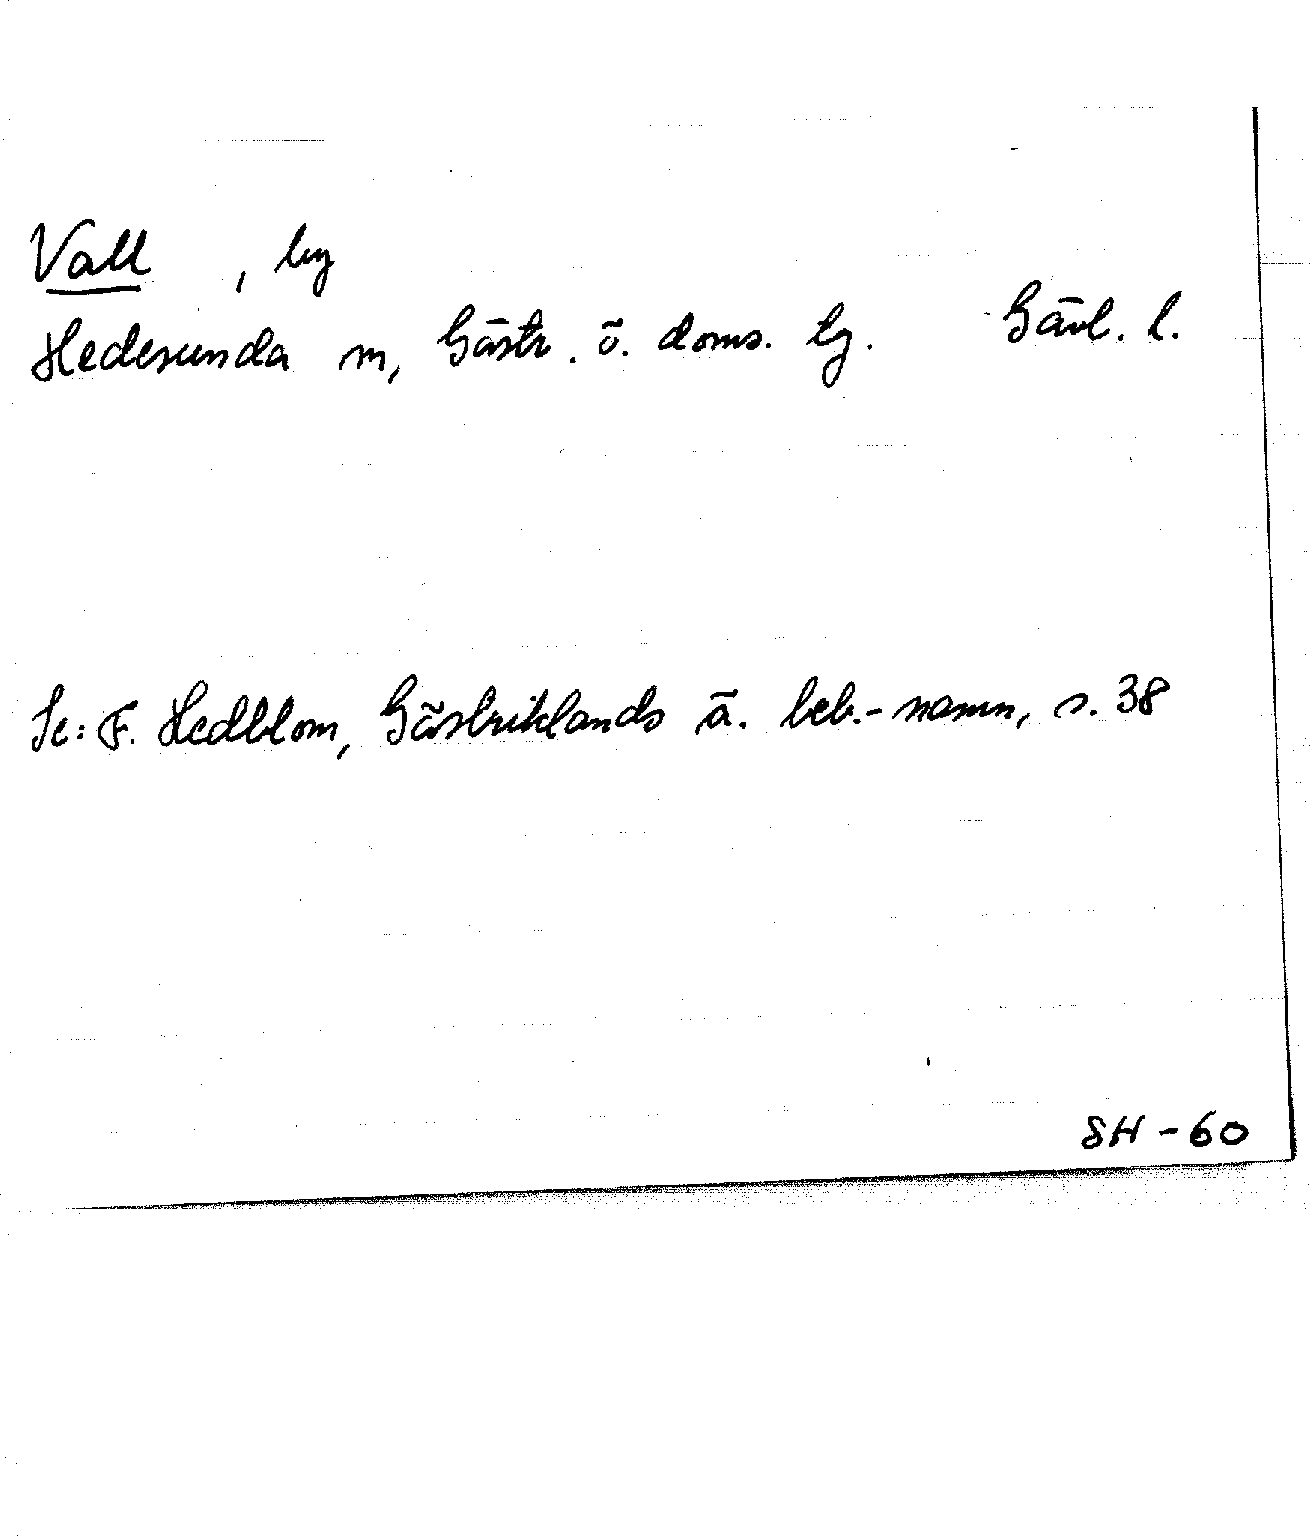 Vall , by
Hedesunda sn, Gästr. ö. doms. tg. Gävl. l.
Se: F. Hedblom, Gästriklands ä. beb.-namn, s. 38
SH - 60